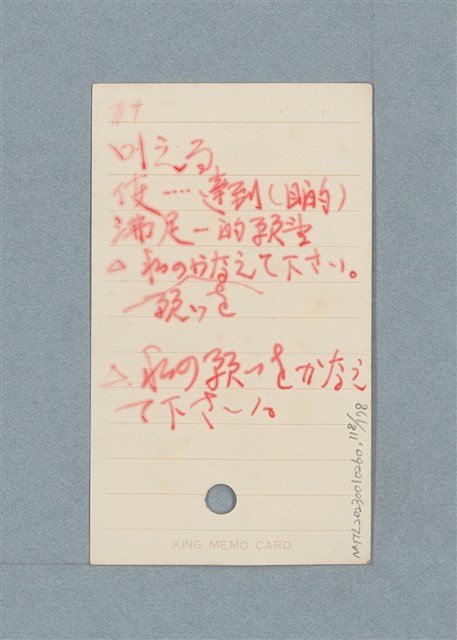 カナ
叶える
使……達到(目的)
滿足一的願望
△私のかなえて下さい。
願いを
△私の願いをかなえ
て下さい。
KING MEMO CARD
NMTL20230010260, 118/178